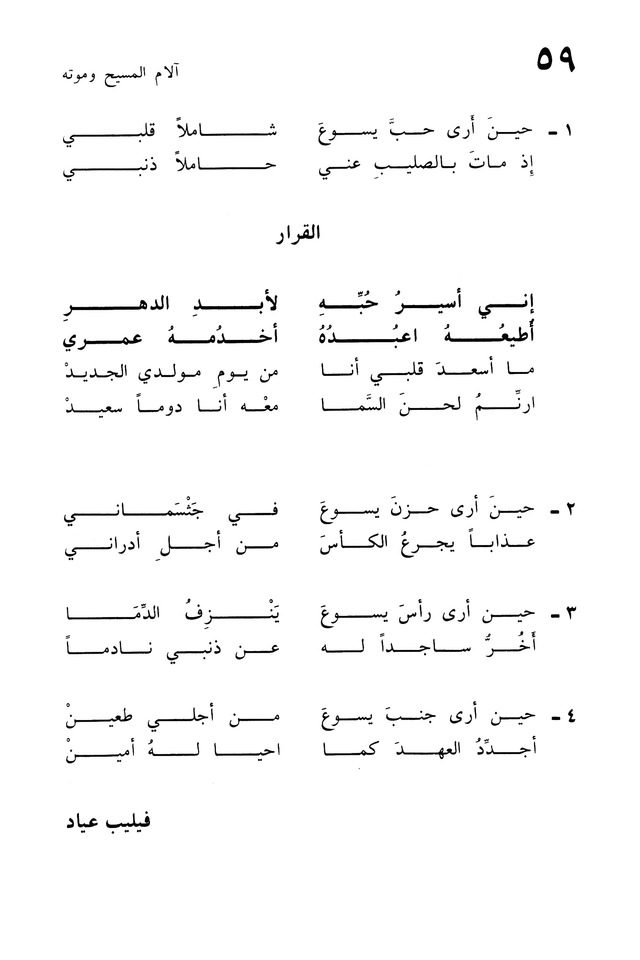 ٥٩
آلام المسيح وموته
١ ـ حينَ أرى حبَّ يسوعَ شاملاً قلبي
إذ ماتَ بالصليبِ عني حاملاً ذنبي
القرار
إني أسيرُ حُبِّهِ لأبدِ الدهرِ
أُطيعُهُ اعبُدُهُ أخدُمهُ عمري
ما أسعدَ قلبي أنا من يومِ مولدي الجديدْ
ارنِّمُ لحنَ السَّما معْه أنا دوماً سعيدْ
٢ ـ حينَ أرى حزنَ يسوعَ في جَثْسَماني
عذاباً يجرعُ الكأسَ من أجلِ أدراني
٣ ـ حين أرى رأسَ يسوعَ يَنْزِفُ الدِّمَا
أَخُرُّ ساجداً له عن ذنبي نادماً
٤ ـ حين أرى جنبَ يسوعَ من أجلي طعينْ
أجدِّدُ العهدَ كما احيا لهُ أمينْ
فيليب عياد